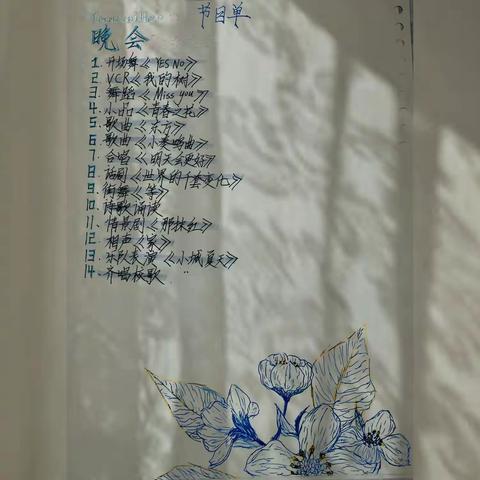 节目单
晚会
1. 开场舞《YES NO》
2. VCR《我的树》
3. 舞蹈《Miss you》
4. 小品《青春之花》
5. 歌曲《东方》
6. 歌曲《小美鸣曲》
7. 合唱《明天会更好》
8. 话剧《世界的千套变化》
9. 街舞《等》
10. 诗歌诵读
11. 情景剧《那抹红》
12. 相声《家》
13. 乐队表演《小城夏天》
14. 齐唱校歌